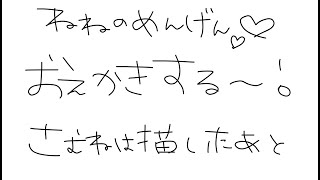 ねねのめんげん♡♡
おえかきする〜!
さむねは描したあと